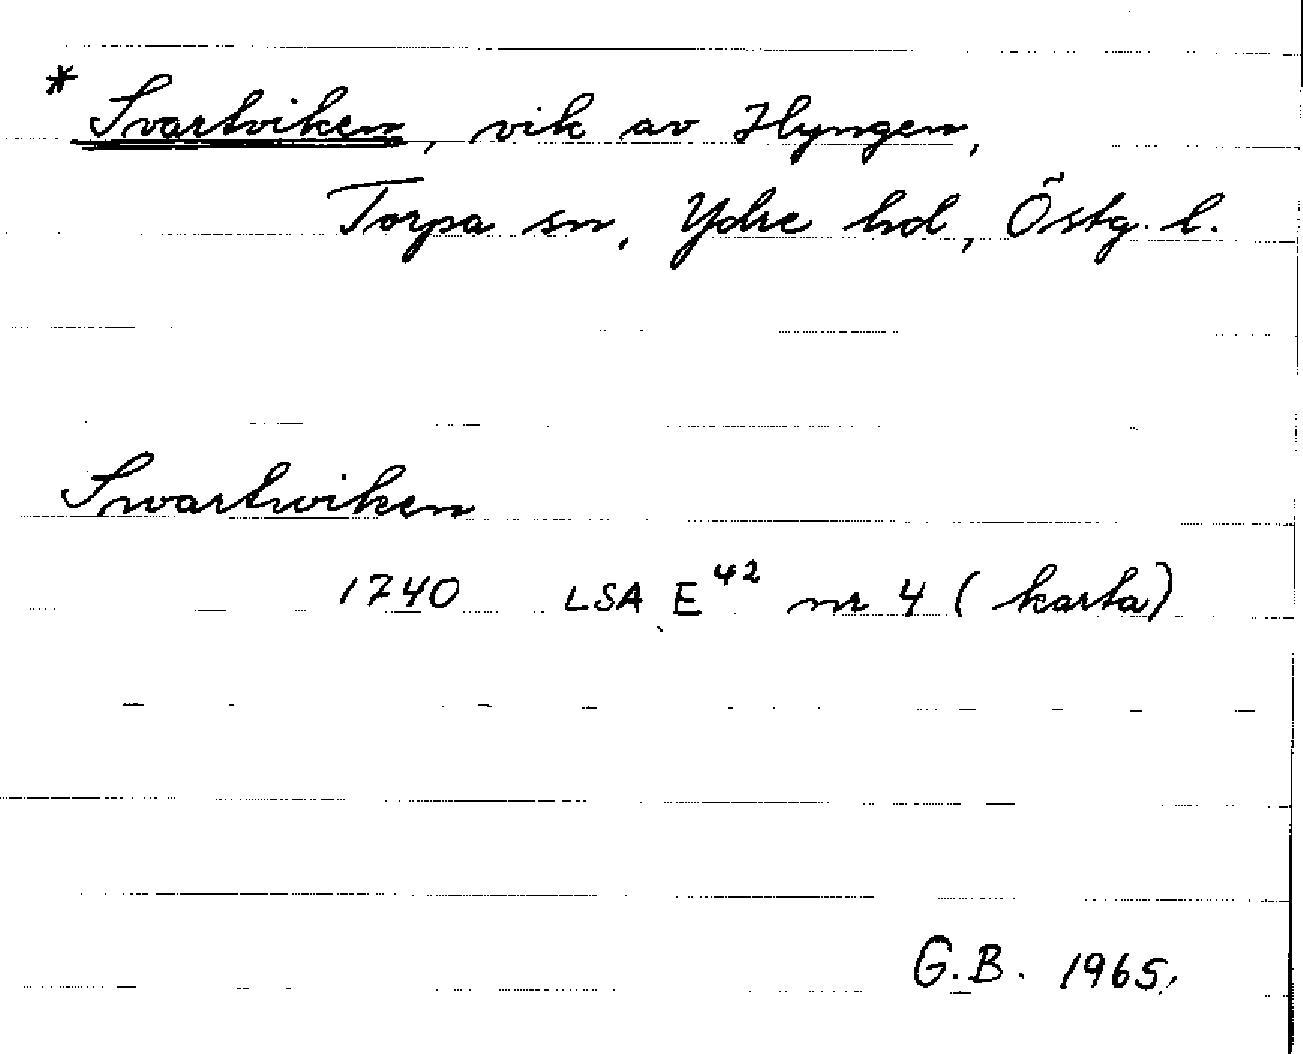 * Svartviken, vik av Hyngen,
Torpa sn, Ydre hd, Östg. l.
Swartwiken
1740 LSA E⁴² nr 4 (karta)
G.B. 1965.